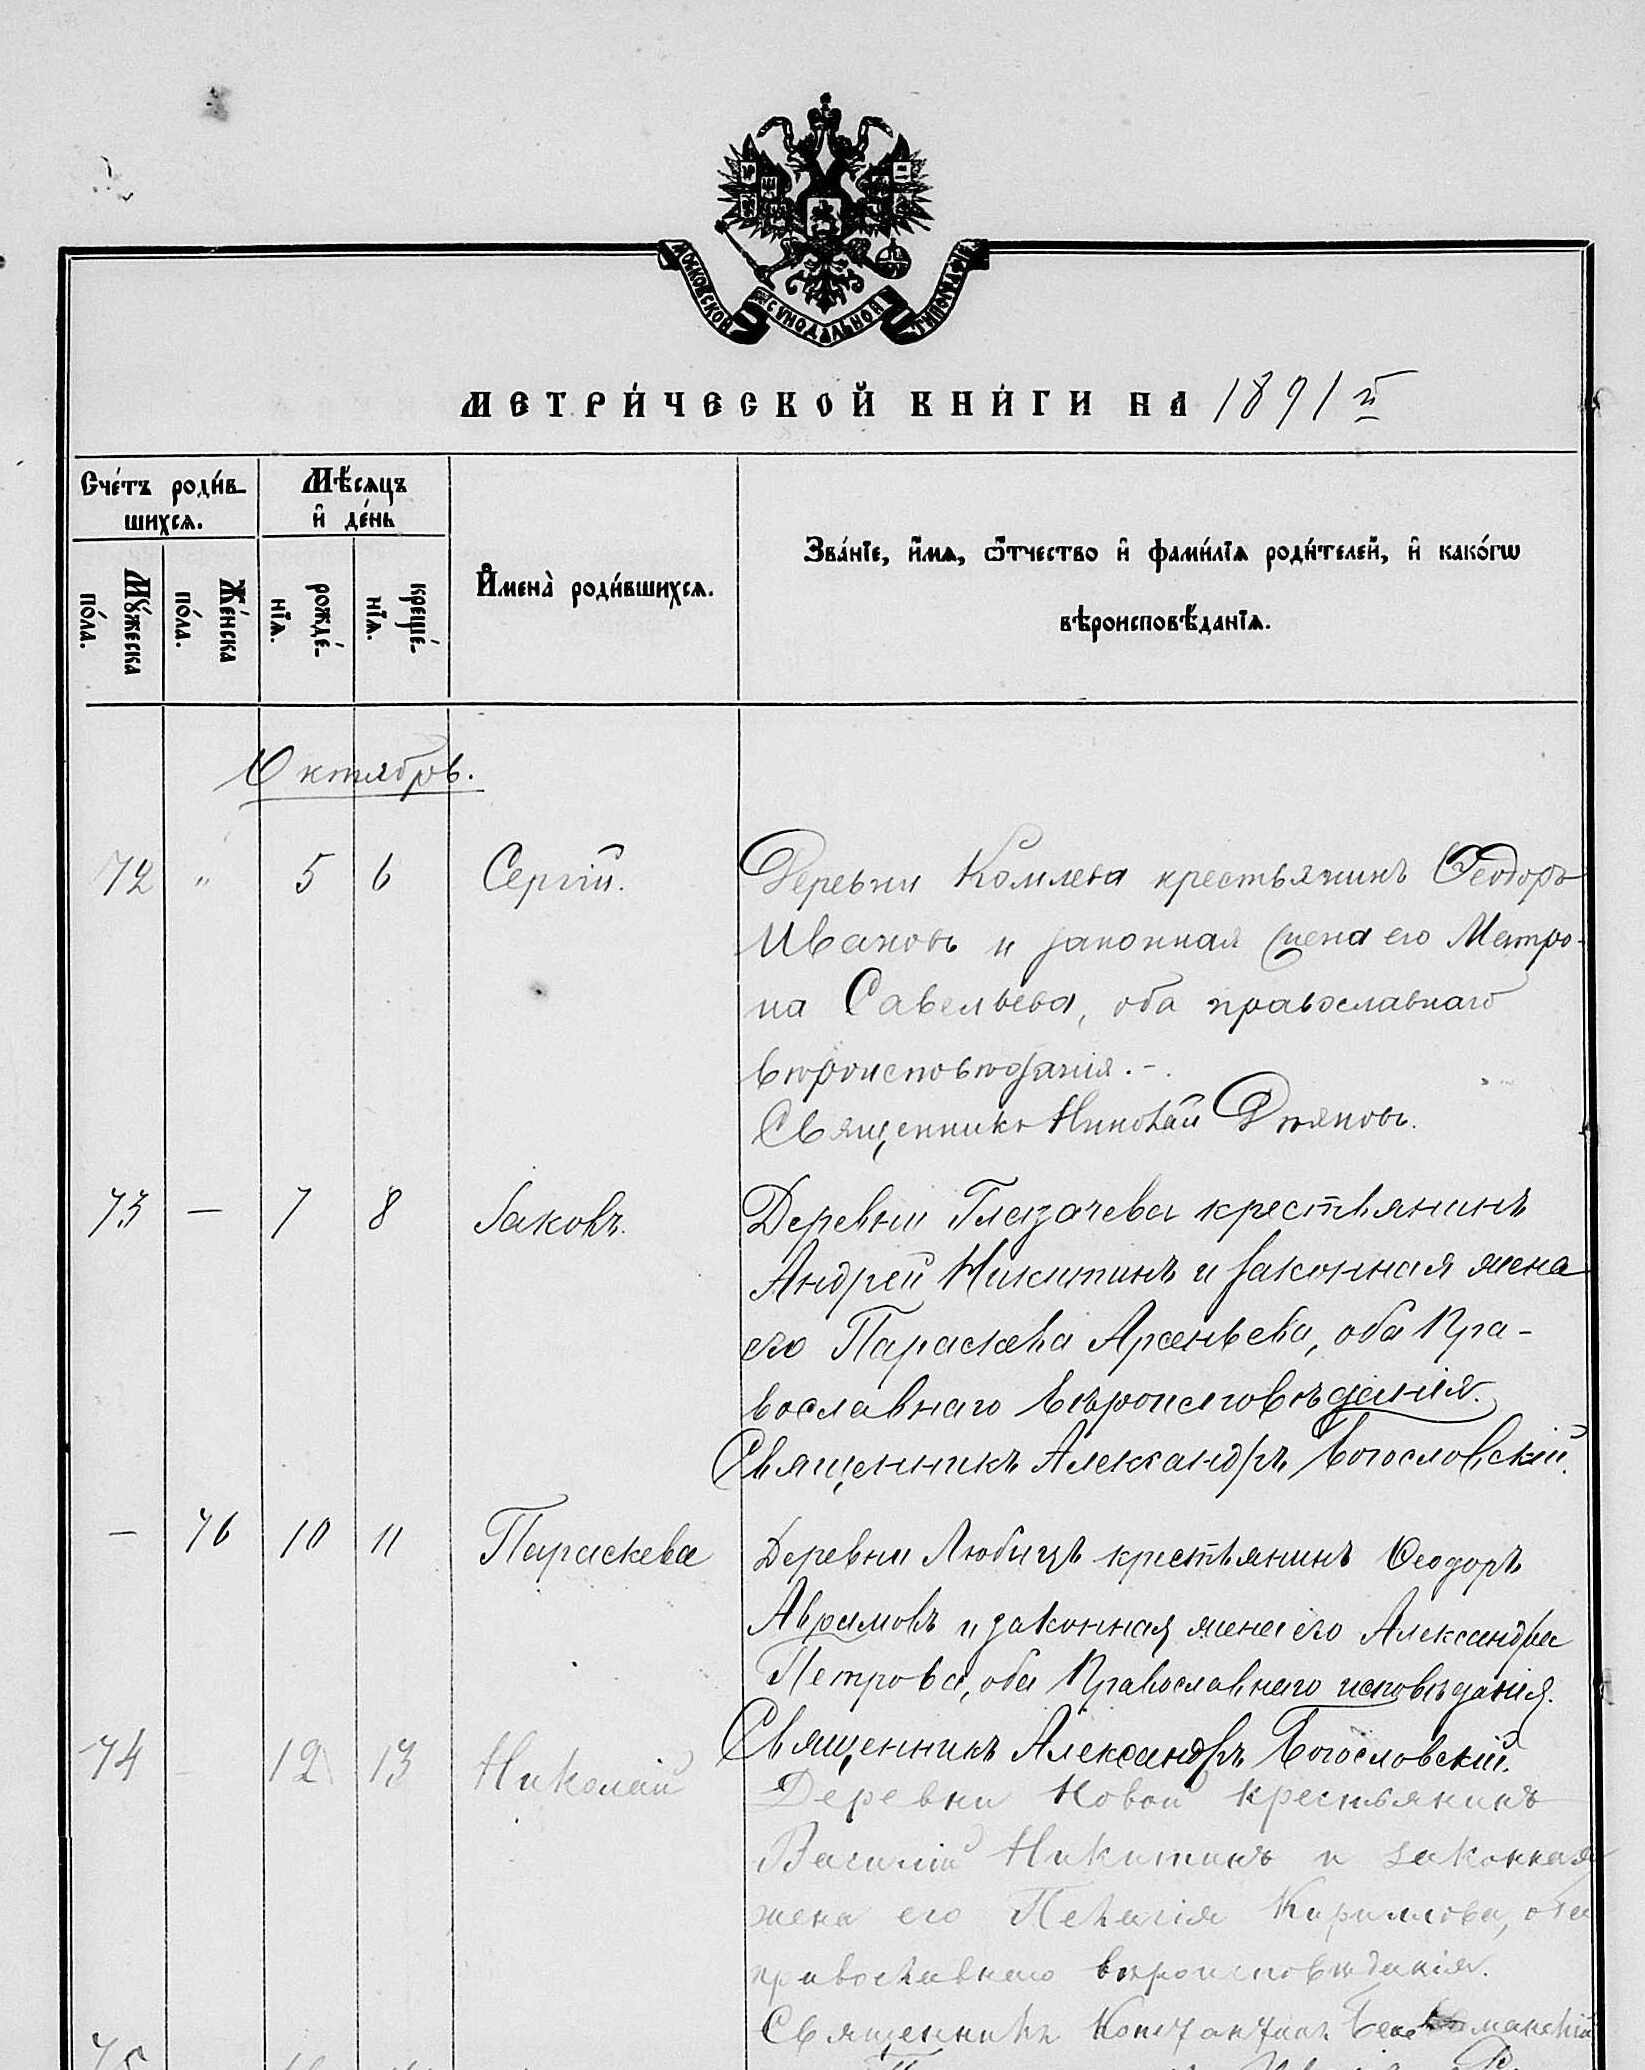 МОСКОВСКОЙ СѴНОДАЛЬНОЙ ТИПОГРАФІИ
МЕТРИ́ЧЕСКОЙ КНИ́ГИ НА 1891 й
Сче́тъ роди́в-
шихсѧ.
Мѣ́сѧцъ
и҆ де́нь
Мꙋ́жеска
по́ла.
Же́нска
по́ла.
рожде́-
нїѧ.
креще́-
нїѧ.
И҆мена̀ роди́вшихсѧ.
Зва́нїе, и҆́мѧ, ѻ҆́тчество и҆ фами́лїѧ роди́телей, и҆ како́гѡ
вѣроисповѣ́данїѧ.
Октябрь.
72 " 5 6 Сергій. Деревни Комлева крестьянинъ Ѳеодоръ
Ивановъ и законная жена его Матро-
на Савельева, оба православнаго
вѣроисповѣданія. -.
Священникъ Николай Дьяковъ.
73 — 7 8 Іаковъ. Деревни Глазачева крестьянинъ
Андрей Никитинъ и законная жена
его Параскева Арсеньева, оба Пра-
вославнаго вѣроисповѣданія.
Священникъ Александръ Богословскій.
— 76 10 11 Параскева Деревни Любицъ крестьянинъ Ѳеодоръ
Аврамовъ и законная жена его Александра
Петрова, оба Православнаго исповѣданія.
Священникъ Александръ Богословскій.
74 - 12 13 Николай Деревни Новой крестьянинъ
Василій Никитинъ и законная
жена его Пелагія Кириллова, оба
православнаго вѣроисповѣданія.
Священникъ Константинъ
75